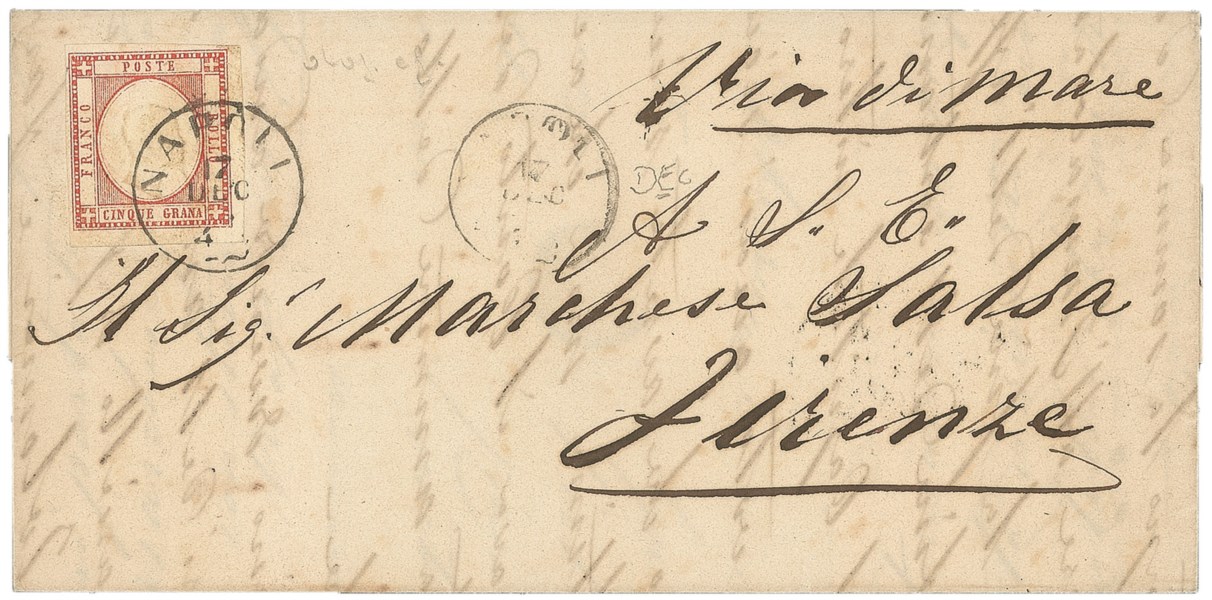 POSTE
FRANCO
BOLLO
CINQUE GRANA
NAPOLI
17
DEC
4
17
DEC
Via di mare
A S. E.
Il Sig.r Marchese Salsa
Firenze